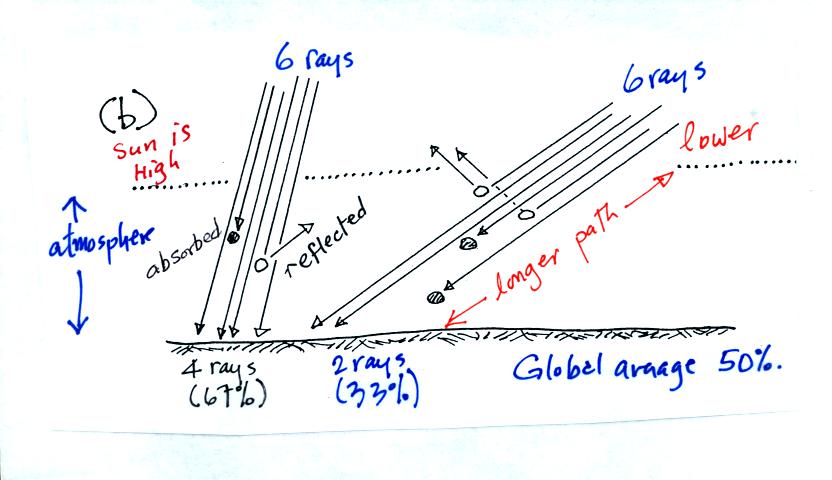 6 rays
6 rays
(b)
Sun is
High
lower
atmosphere
absorbed
reflected
longer path
4 rays
(67%)
2 rays
(33%)
Global avaage 50%.